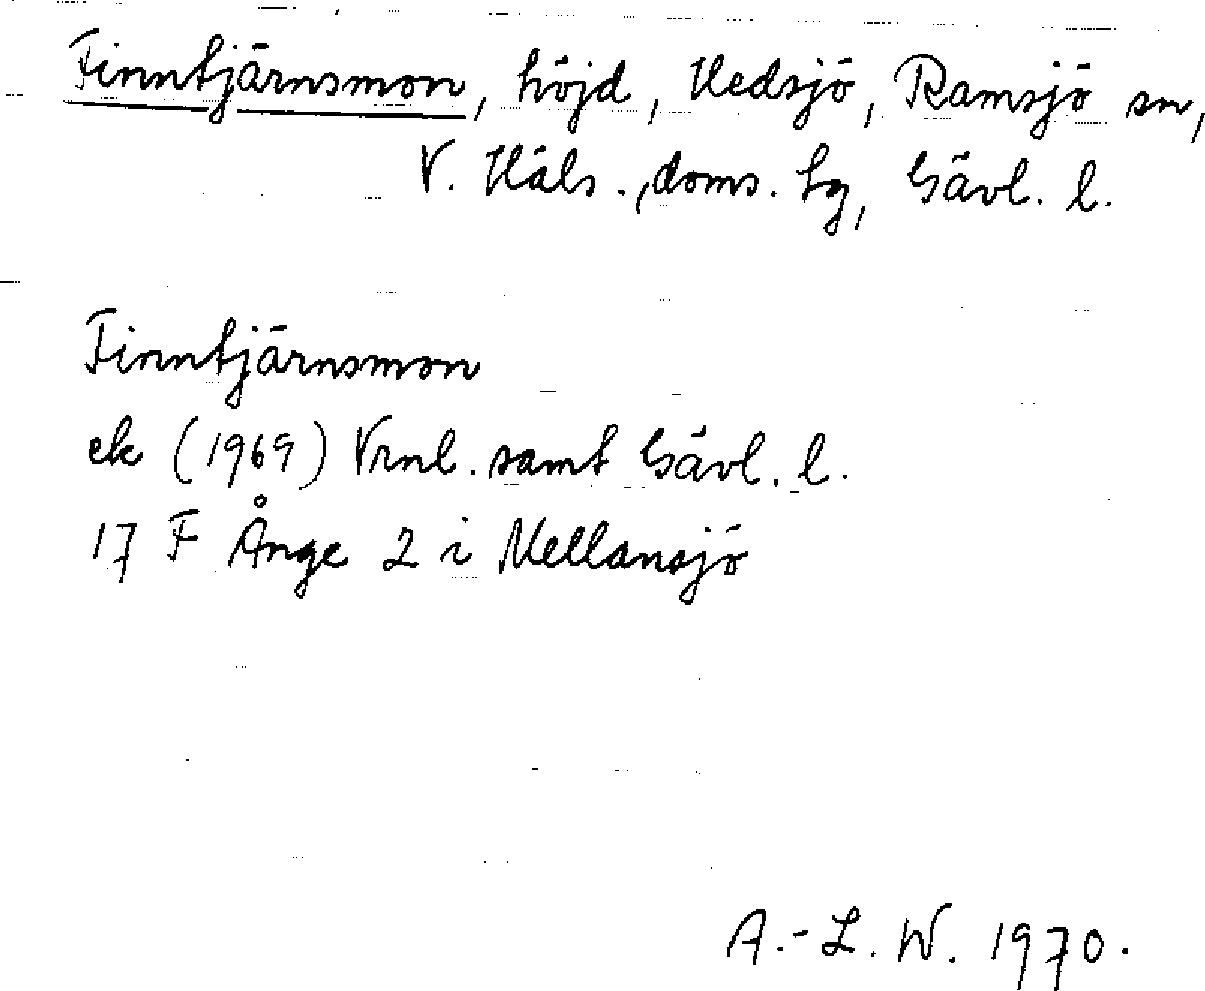 Finntjärnsmon, höjd, Hedsjö, Ramsjö sn,
V. Häls., doms. hg, Gävl. l.
Finntjärnsmon
ek (1969) Vrnl. samt Gävl. l.
17 F Ånge 2 i Mellansjö
A.-L. W. 1970.